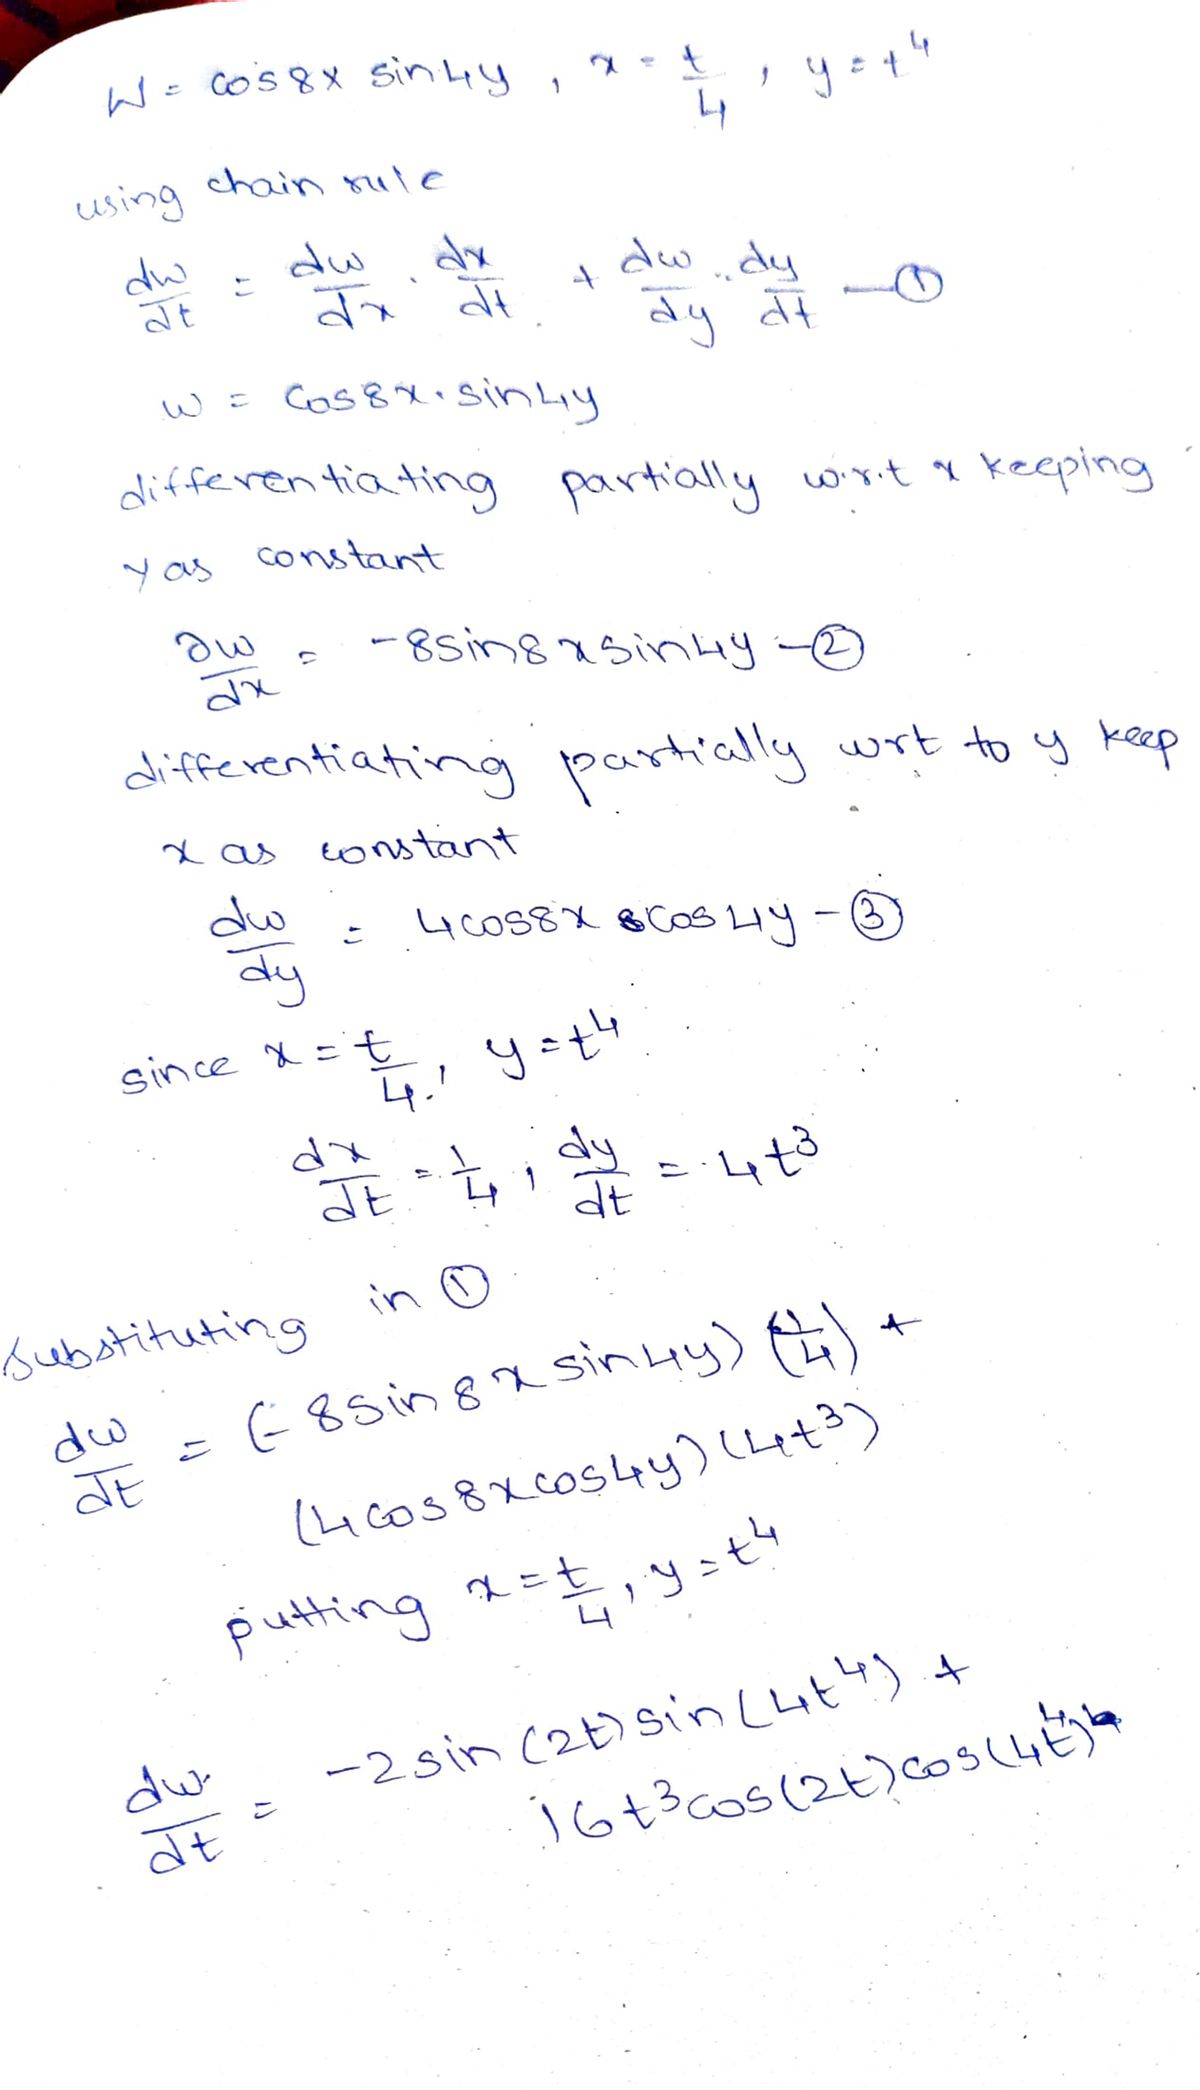 W = cos8x sin4y , x = t/4 , y = t^4
using chain rule
dw/dt = dw/dx . dx/dt + dw/dy .. dy/dt —①
w = Cos8x.sin4y
differentiating partially w.r.t x keeping
y as constant
∂w/dx = -8sin8xsin4y -②
differentiating partially wrt to y keep
x as constant
dw/dy = 4cos8x cos4y -③
since x = t/4, y = t^4
dx/dt = 1/4 , dy/dt = 4t^3
substituting in ①
dw/dt = (-8sin8x sin4y) (1/4) +
(4cos8xcos4y) (4t^3)
putting x = t/4, y = t^4
dw/dt = -2sin(2t)sin(4t^4) +
16t^3cos(2t)cos(4t^4)